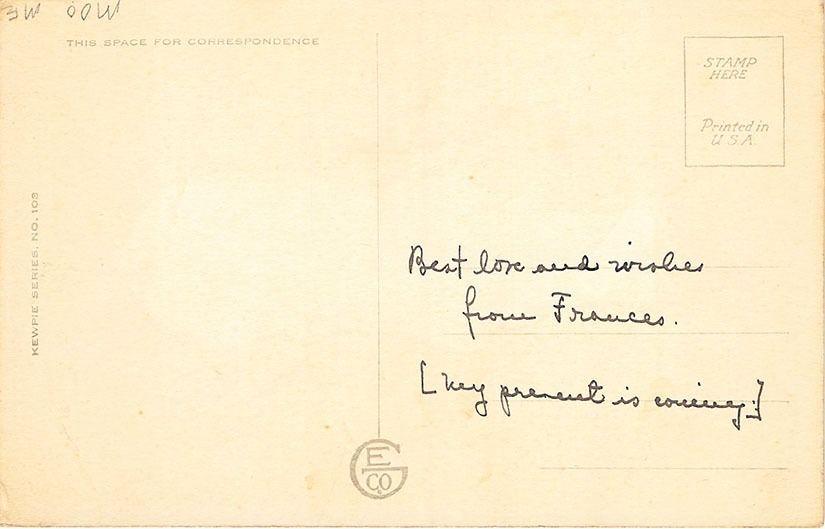 THIS SPACE FOR CORRESPONDENCE
STAMP
HERE
Printed in
U.S.A.
KEWPIE SERIES, NO. 103
Best love and wishes
from Frances.
[My present is coming.]
G
E
CO